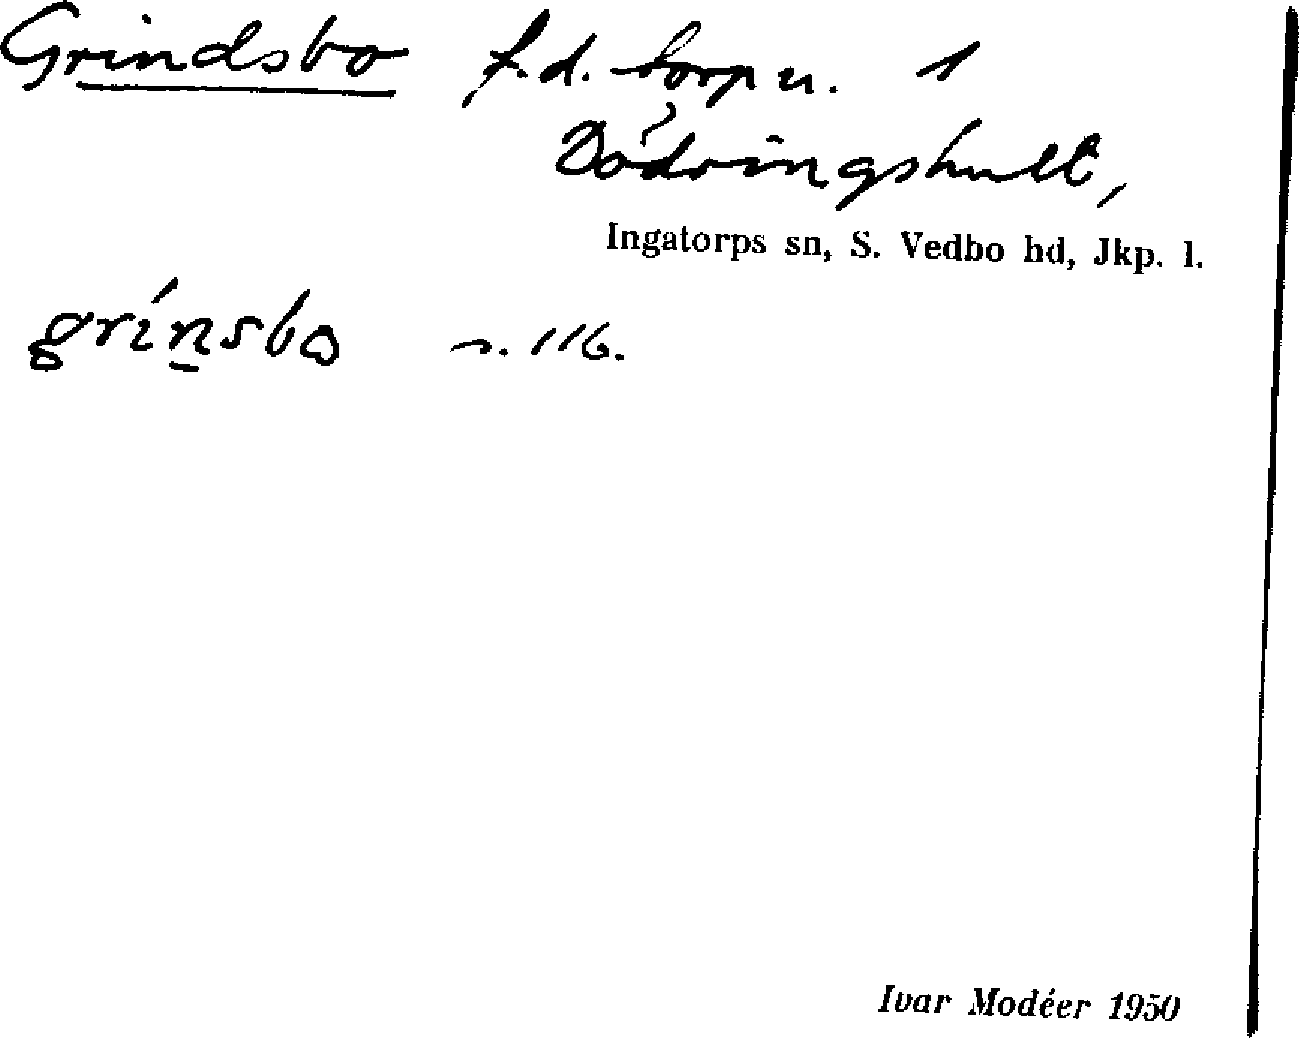 Grindsbo f.d. torp u. 1
Dödringshult,
Ingatorps sn, S. Vedbo hd, Jkp. l.
grínsbo s. 116.
Ivar Modéer 1950